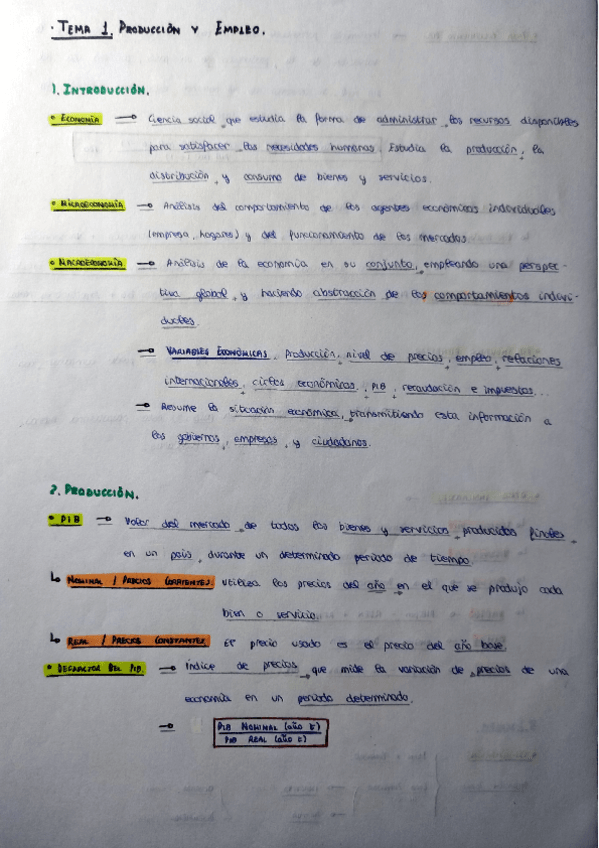 · TEMA 1. PRODUCCIÓN Y EMPLEO.
1. INTRODUCCIÓN.
• ECONOMÍA → Ciencia social que estudia la forma de administrar los recursos disponibles
para satisfacer las necesidades humanas. Estudia la producción, la
distribución y consumo de bienes y servicios.
• MICROECONOMÍA → Análisis del comportamiento de los agentes económicos individuales
(empresa, hogares) y del funcionamiento de los mercados.
• MACROECONOMÍA → Análisis de la economía en su conjunto, empleando una perspec-
tiva global y haciendo abstracción de los comportamientos indivi-
duales.
→ VARIABLES ECONÓMICAS, producción, nivel de precios, empleo, relaciones
internacionales, ciclos económicos, PIB, recaudación e impuestos...
→ Resume la situación económica, transmitiendo esta información a
los gobiernos, empresas y ciudadanos.
2. PRODUCCIÓN.
• PIB → Valor del mercado de todos los bienes y servicios producidos finales
en un país, durante un determinado periodo de tiempo.
↳ NOMINAL / PRECIOS CORRIENTES. Utiliza los precios del año en el que se produjo cada
bien o servicio.
↳ REAL / PRECIOS CONSTANTES. El precio usado es el precio del año base.
• DEFLACTOR DEL PIB. → Índice de precios que mide la variación de precios de una
economía en un periodo determinado.
→ PIB NOMINAL (año t)
PIB REAL (año t)